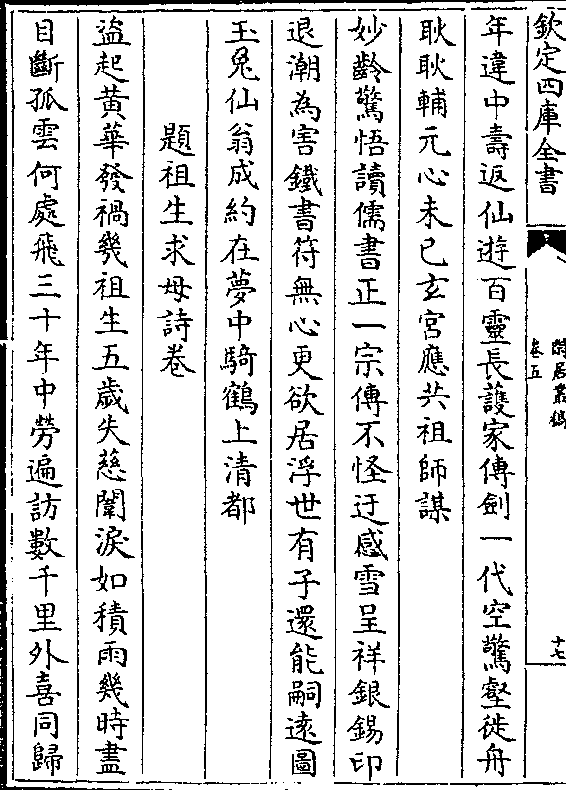 欽定四庫全書
閒居叢稿
卷五
十七
年違中壽返仙遊百靈長護家傳劍一代空驚壑徙舟
耿耿輔元心未已玄宮應共祖師謀
妙齡驚悟讀儒書正一宗傳不怪迂感雪呈祥銀錫印
退潮為害鐵書符無心更欲居浮世有子還能嗣遠圖
玉兔仙翁成約在夢中騎鶴上清都
題祖生求母詩卷
盜起黃華發禍幾祖生五歲失慈闈淚如積雨幾時盡
目斷孤雲何處飛三十年中勞遍訪數千里外喜同歸